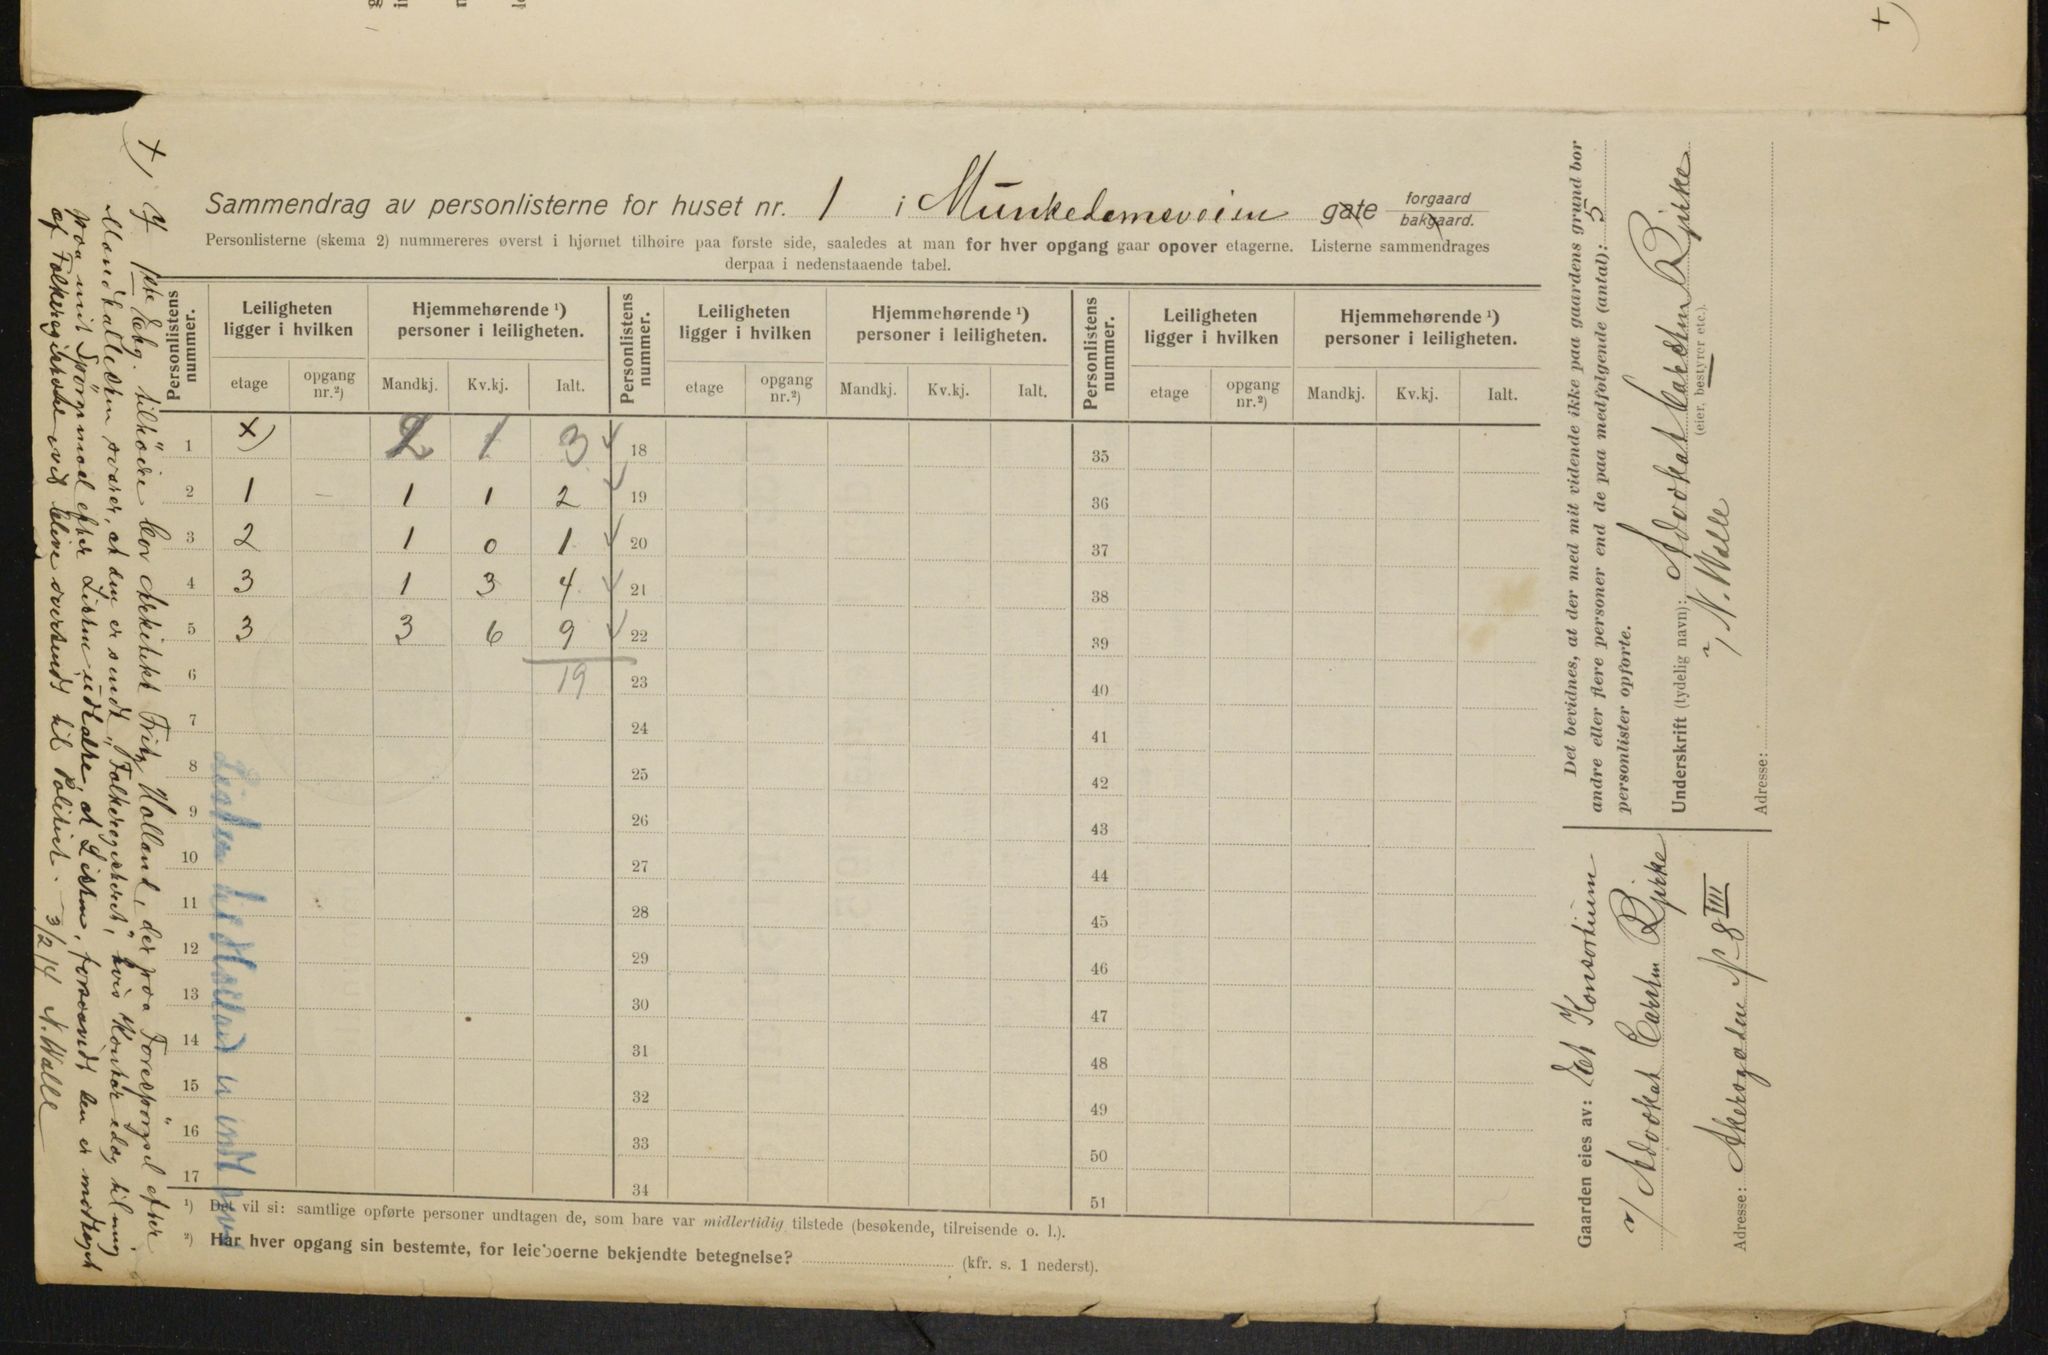 +)
Sammendrag av personlisterne for huset nr. 1 i Munkedamsveien gate forgaard bakgaard.
Personlisterne (skema 2) nummereres øverst i hjørnet tilhøire paa første side, saaledes at man for hver opgang gaar opover etagerne. Listerne sammendrages
derpaa i nedenstaaende tabel.
Personlistens nummer. Leiligheten ligger i hvilken Hjemmehørende ¹) personer i leiligheten. Personlistens nummer. Leiligheten ligger i hvilken Hjemmehørende ¹) personer i leiligheten. Personlistens nummer. Leiligheten ligger i hvilken Hjemmehørende ¹) personer i leiligheten.
etage opgang nr.²) Mandkj. Kv.kj. Ialt. etage opgang nr.²) Mandkj. Kv.kj. Ialt. etage opgang nr.²) Mandkj. Kv.kj. Ialt.
1 x) 2 1 3 18 35
2 1 – 1 1 2 19 36
3 2 1 0 1 20 37
4 3 1 3 4 21 38
5 3 3 6 9 22 39
6 19 23 40
7 24 41
8 25 42
9 26 43
10 27 44
11 28 45
12 29 46
13 30 47
14 31 48
15 32 49
16 33 50
17 34 51
¹) Det vil si: samtlige opførte personer undtagen de, som bare var midlertidig tilstede (besøkende, tilreisende o. l.).
²) Har hver opgang sin bestemte, for leieboerne bekjendte betegnelse? (kfr. s. 1 nederst).
+) I 1ste Etg. tilhöire bor Arkitekt Fritz Holland, der paa Forespörgsel efter
Mandtallisten svarer, at den er sendt "Folkeregisteret", hvis Kontor idag til mig
paa mit Spörgsmaal efter Listen udtalte, at Listen, forsaavidt den er modtaget
af Folkeregisteret vil blive oversendt til Politiet. 3/2 14 N. Walle
Listen til Holland
Det bevidnes, at der med mit vidende ikke paa gaardens grund bor
andre eller flere personer end de paa medfølgende (antal): 5
personlister opførte.
Underskrift (tydelig navn): Advokat Carsten Bjirke
(eier, bestyrer etc.).
v/ N. Walle
Adresse:
Gaarden eies av: Et Konsortium
v/ Advokat Carsten Bjirke
Adresse: Akersgaden Nº 8 III